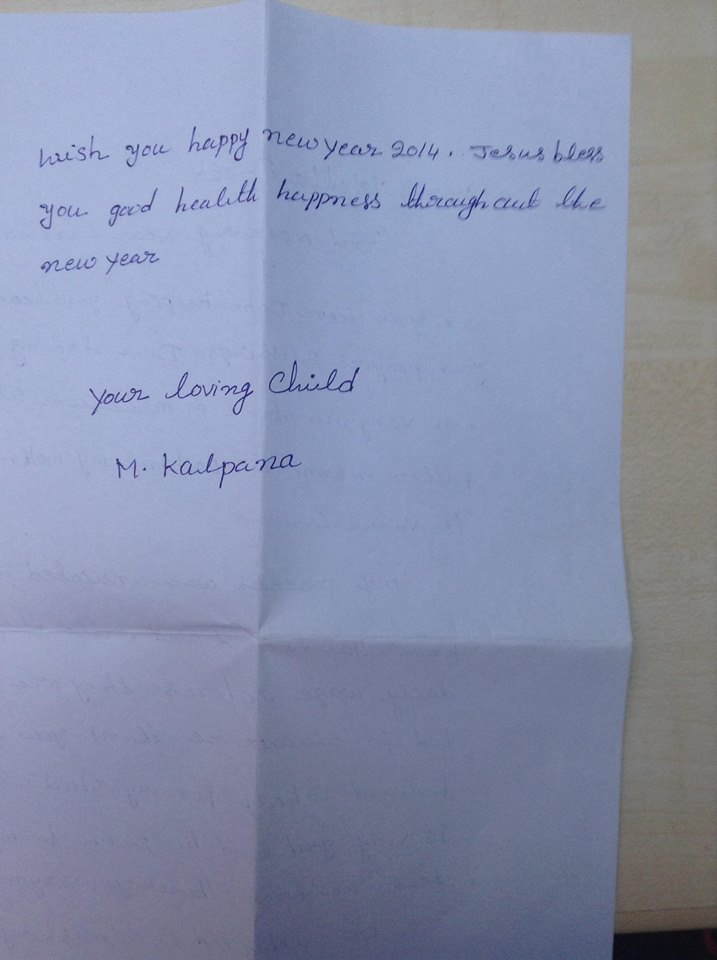 wish you happy new year 2014. Jesus bless
you good health happness throughout the
new year
your loving child
M. Kalpana